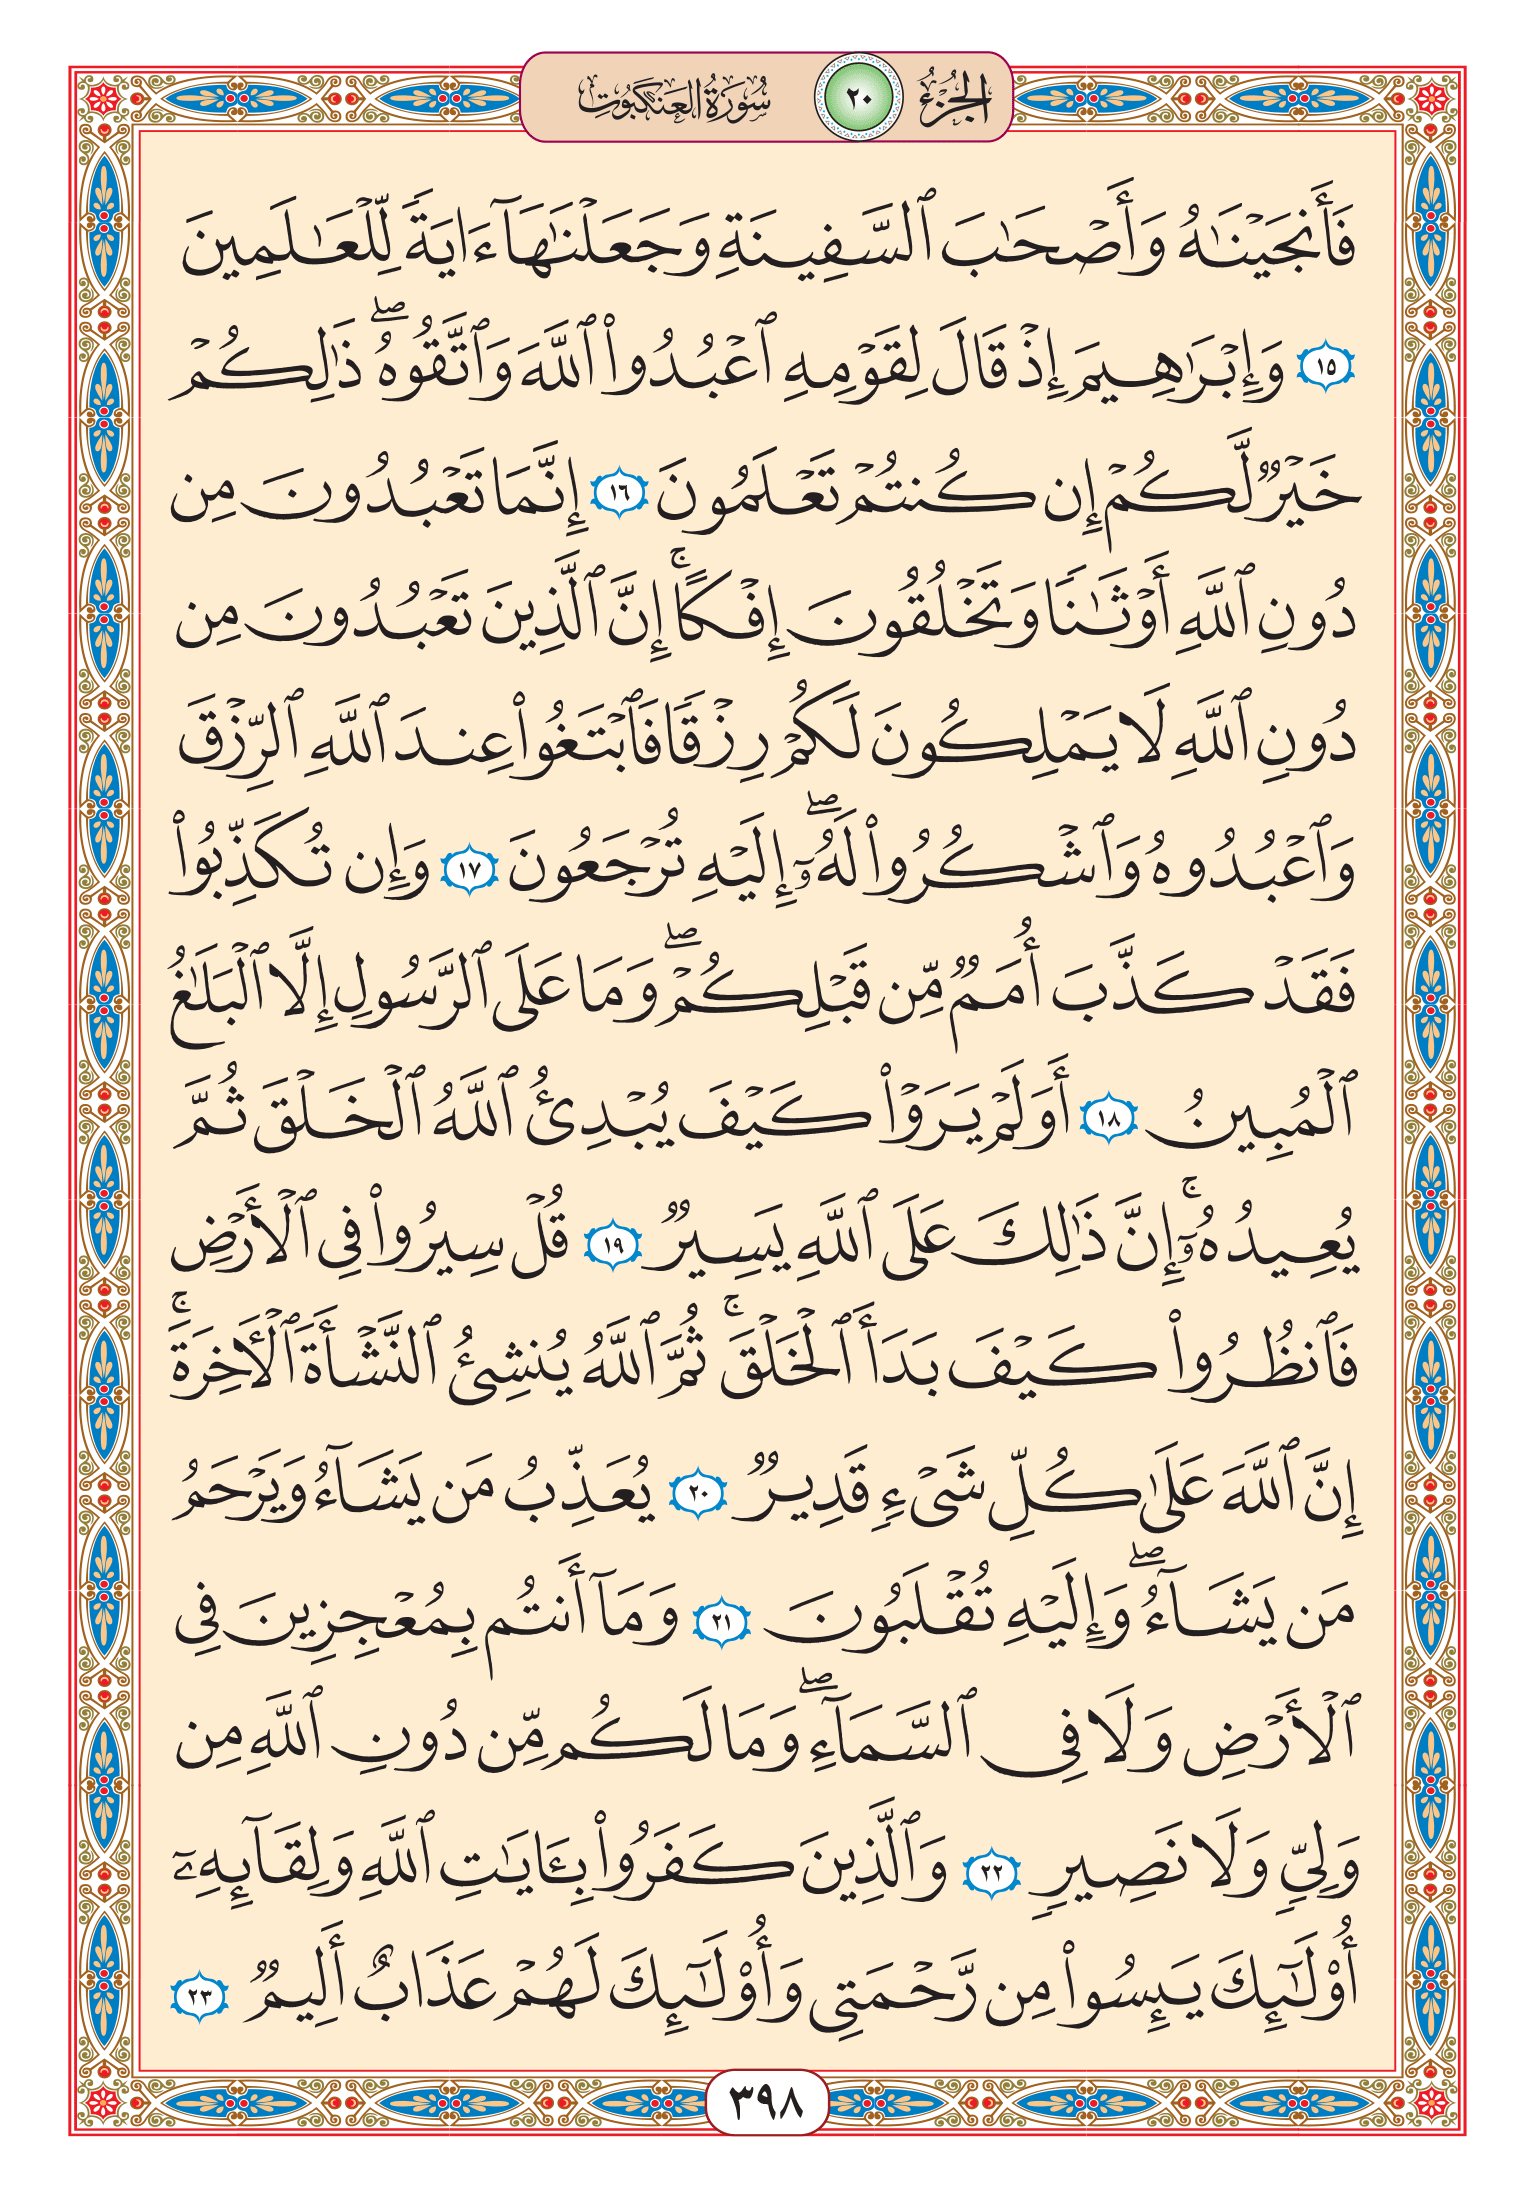 الجزء ٢٠ سورة العنكبوت
فَأَنجَيْنَٰهُ وَأَصْحَٰبَ ٱلسَّفِينَةِ وَجَعَلْنَٰهَآ ءَايَةً لِّلْعَٰلَمِينَ
١٥ وَإِبْرَٰهِيمَ إِذْ قَالَ لِقَوْمِهِ ٱعْبُدُوا۟ ٱللَّهَ وَٱتَّقُوهُ ۖ ذَٰلِكُمْ
خَيْرٌ لَّكُمْ إِن كُنتُمْ تَعْلَمُونَ ١٦ إِنَّمَا تَعْبُدُونَ مِن
دُونِ ٱللَّهِ أَوْثَٰنًا وَتَخْلُقُونَ إِفْكًا ۚ إِنَّ ٱلَّذِينَ تَعْبُدُونَ مِن
دُونِ ٱللَّهِ لَا يَمْلِكُونَ لَكُمْ رِزْقًا فَٱبْتَغُوا۟ عِندَ ٱللَّهِ ٱلرِّزْقَ
وَٱعْبُدُوهُ وَٱشْكُرُوا۟ لَهُۥٓ ۖ إِلَيْهِ تُرْجَعُونَ ١٧ وَإِن تُكَذِّبُوا۟
فَقَدْ كَذَّبَ أُمَمٌ مِّن قَبْلِكُمْ ۖ وَمَا عَلَى ٱلرَّسُولِ إِلَّا ٱلْبَلَٰغُ
ٱلْمُبِينُ ١٨ أَوَلَمْ يَرَوْا۟ كَيْفَ يُبْدِئُ ٱللَّهُ ٱلْخَلْقَ ثُمَّ
يُعِيدُهُۥٓ ۚ إِنَّ ذَٰلِكَ عَلَى ٱللَّهِ يَسِيرٌ ١٩ قُلْ سِيرُوا۟ فِى ٱلْأَرْضِ
فَٱنظُرُوا۟ كَيْفَ بَدَأَ ٱلْخَلْقَ ۚ ثُمَّ ٱللَّهُ يُنشِئُ ٱلنَّشْأَةَ ٱلْـَٔاخِرَةَ ۚ
إِنَّ ٱللَّهَ عَلَىٰ كُلِّ شَىْءٍ قَدِيرٌ ٢٠ يُعَذِّبُ مَن يَشَآءُ وَيَرْحَمُ
مَن يَشَآءُ ۖ وَإِلَيْهِ تُقْلَبُونَ ٢١ وَمَآ أَنتُم بِمُعْجِزِينَ فِى
ٱلْأَرْضِ وَلَا فِى ٱلسَّمَآءِ ۖ وَمَا لَكُم مِّن دُونِ ٱللَّهِ مِن
وَلِىٍّ وَلَا نَصِيرٍ ٢٢ وَٱلَّذِينَ كَفَرُوا۟ بِـَٔايَٰتِ ٱللَّهِ وَلِقَآئِهِۦٓ
أُو۟لَٰٓئِكَ يَئِسُوا۟ مِن رَّحْمَتِى وَأُو۟لَٰٓئِكَ لَهُمْ عَذَابٌ أَلِيمٌ ٢٣
٣٩٨